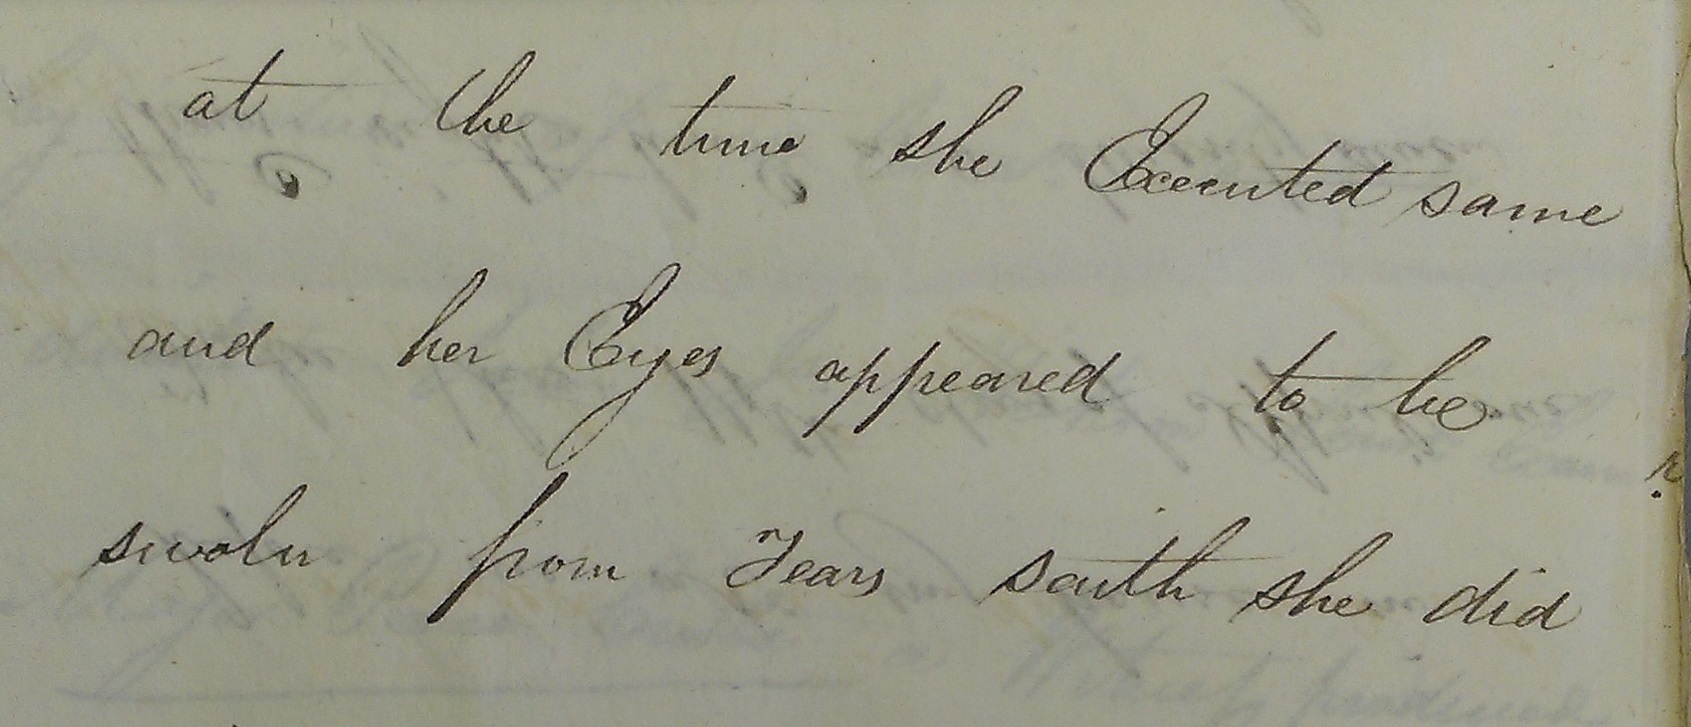 at the time she Executed same
and her Eyes appeared to be
swoln from Tears saith she did